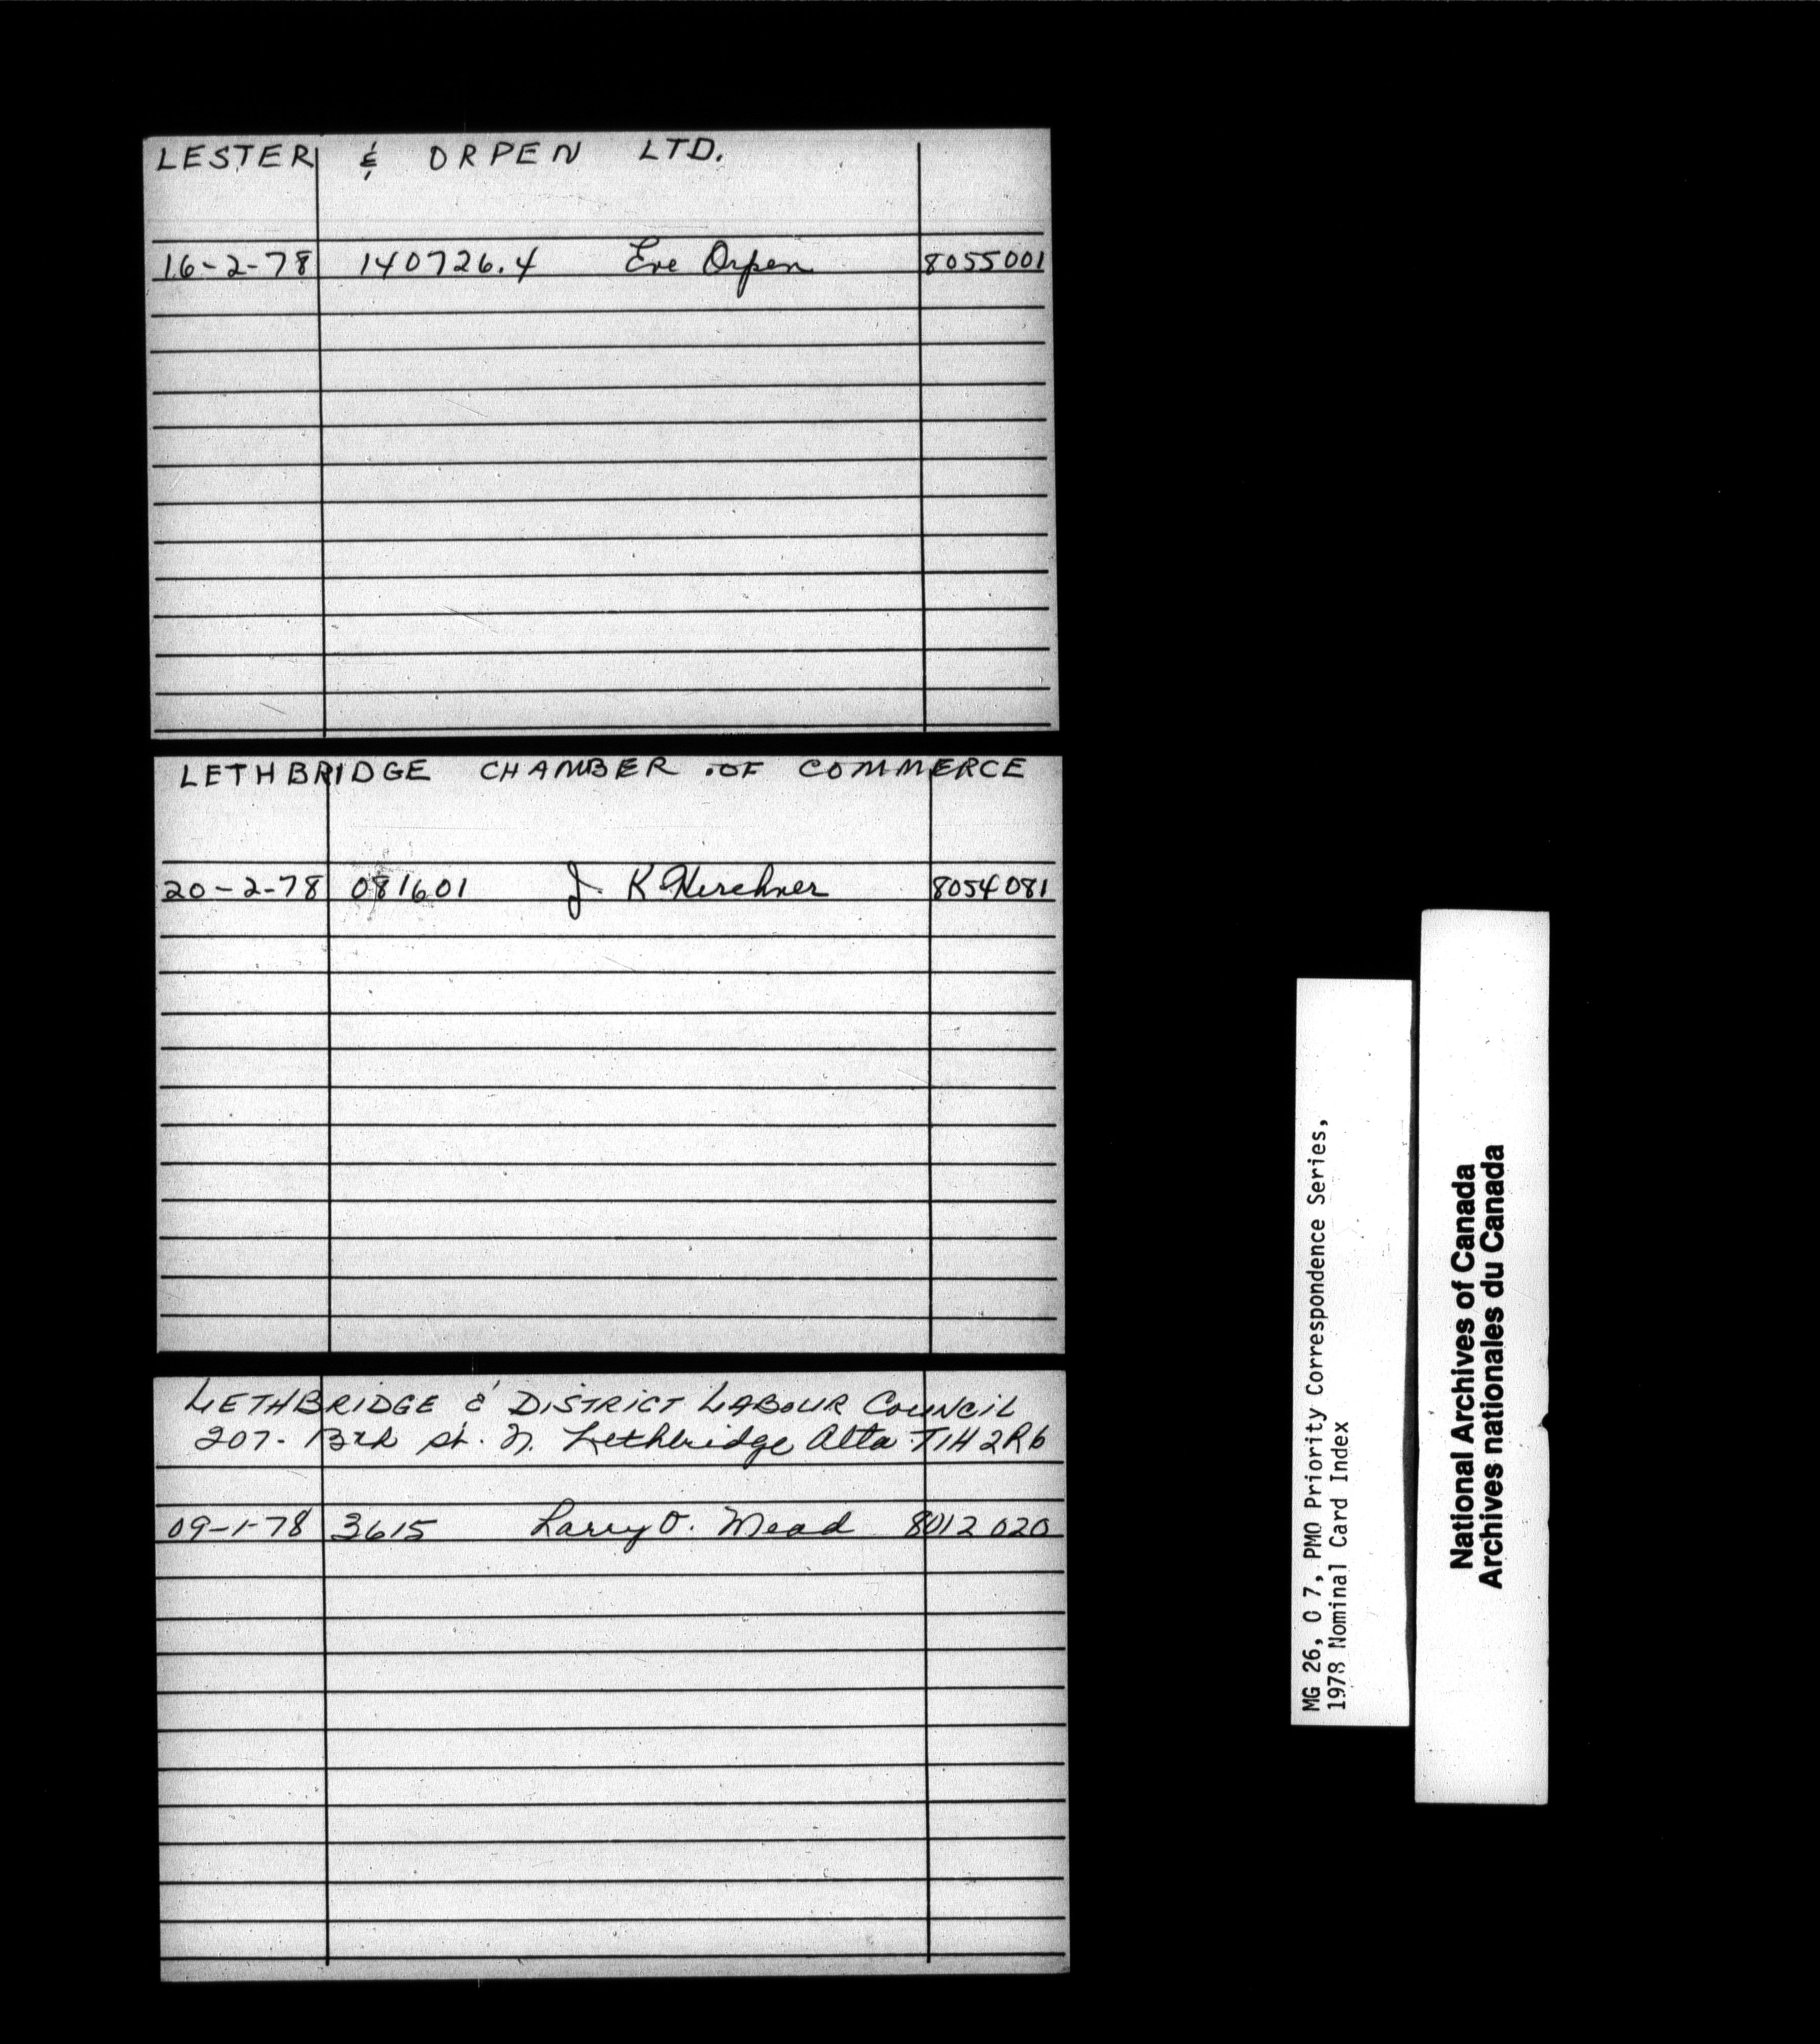 LESTER & ORPEN LTD.
16-2-78 140726.4 Eve Orpen 8055001
LETHBRIDGE CHAMBER OF COMMERCE
20-2-78 081601 J. K. Kerchner 8054081
LETHBRIDGE & DISTRICT LABOUR COUNCIL
207- 13th st. N. Lethbridge Alta T1H 2R6
09-1-78 3615 Larry O. Mead 8012020
MG 26, O 7, PMO Priority Correspondence Series,
1978 Nominal Card Index
National Archives of Canada
Archives nationales du Canada